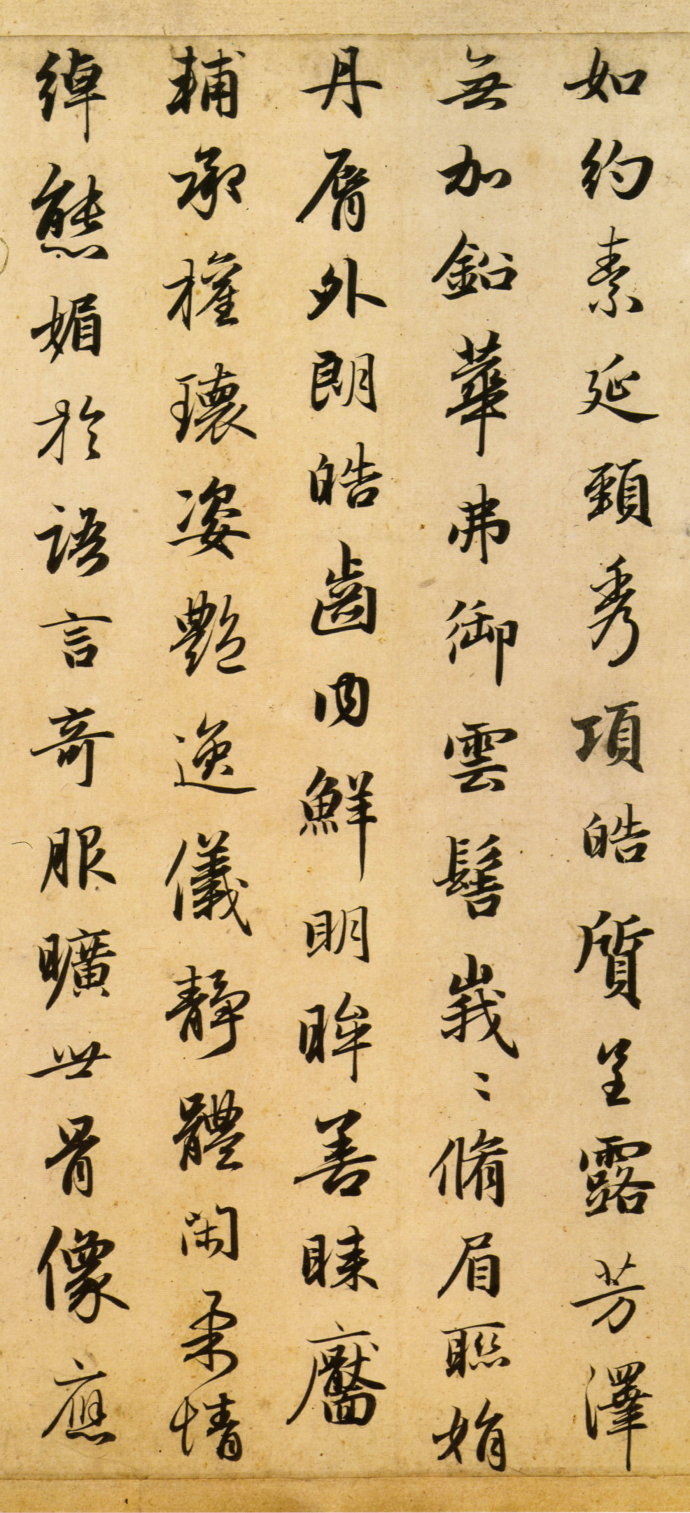 如約素延頸秀項皓質呈露芳澤
無加鉛華弗御雲髻峩〻脩眉聯娟
丹脣外朗皓齒内鮮明眸善睞靨
輔承權瓌姿艷逸儀靜體閑柔情
綽態媚於語言奇服曠世骨像應